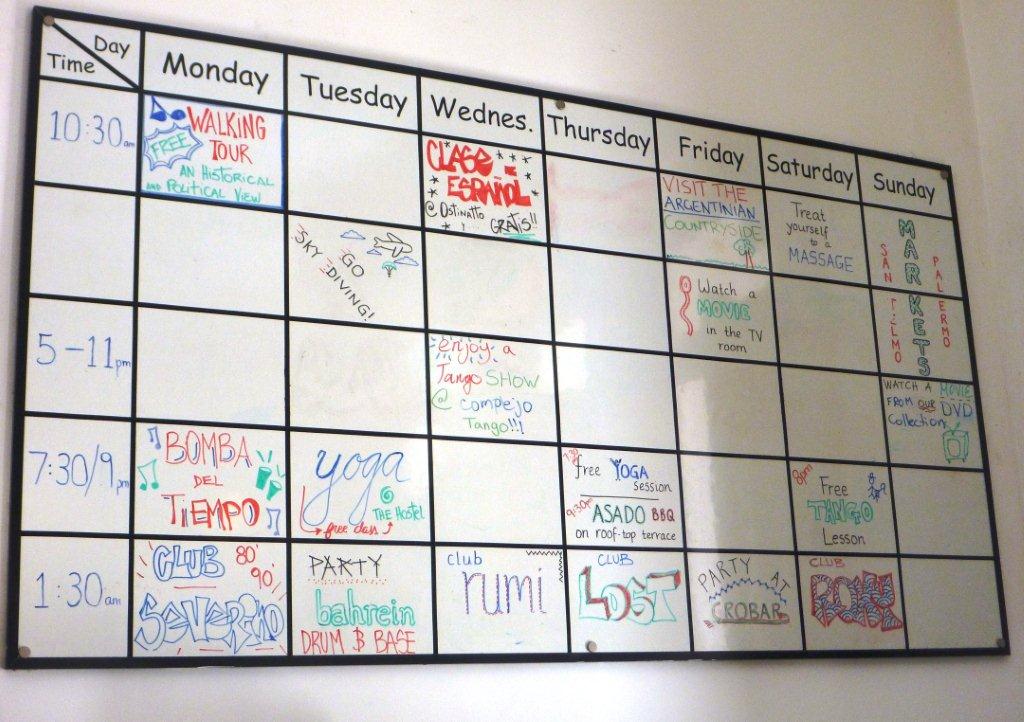 Day
Time
Monday
Tuesday
Wednes.
Thursday
Friday
Saturday
Sunday
10:30am
FREE
WALKING
TOUR
AN HISTORICAL
AND POLITICAL VIEW
CLASE
ESPAÑOL
@ Ostinatto
GRATIS!!
VISIT THE
ARGENTINIAN
COUNTRYSIDE
Treat
yourself
to a
MASSAGE
MARKETS
SAN TELMO
PALERMO
GO
SKY DIVING!
Watch a
MOVIE
in the TV
room
5-11pm
enjoy a
Tango SHOW
@ complejo
Tango!!!
WATCH A MOVIE
FROM OUR DVD
Collection
7:30/9pm
BOMBA
DEL
TIEMPO
yoga
@
THE HOSTEL
free class
7:30
free YOGA
session
9:30pm
ASADO BBQ
on roof-top terrace
8pm
Free
TANGO
Lesson
1:30am
CLUB 80'
90'
SEVERINO
PARTY
bahrein
DRUM & BASE
club
rumi
CLUB
LOST
PARTY AT
CROBAR
CLUB